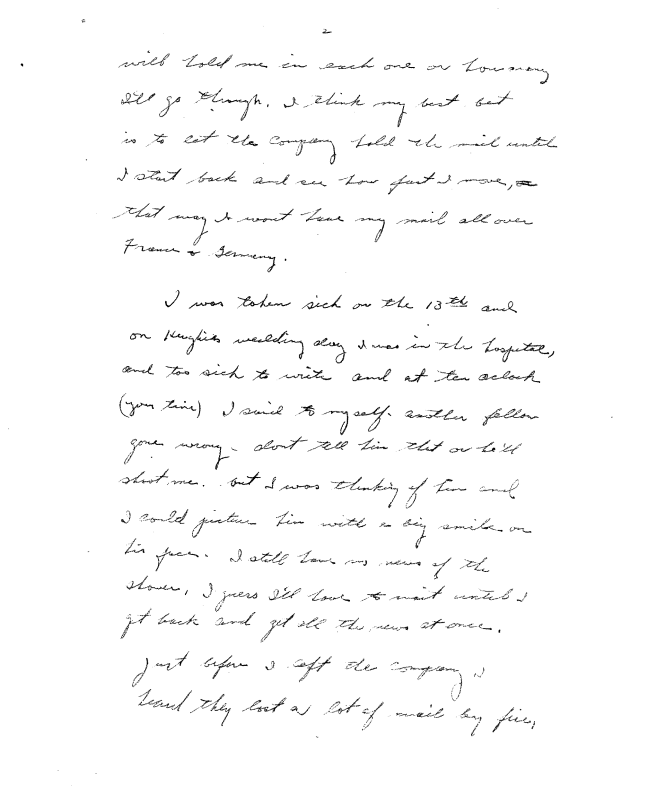 2
will hold me in each one or how many
I'll go through. I think my best bet
is to let the company hold the mail until
I start back and see how fast I move,
that way I wont have my mail all over
France & Germany.
I was taken sick on the 13th and
on Hughies wedding day I was in the hospital,
and too sick to write and at ten oclock
(your time) I said to myself - another fellow
gone wrong - dont tell him that or he'll
shoot me. but I was thinking of him and
I could picture him with a big smile on
his face. I still have no news of the
shower, I guess I'll have to wait until I
get back and get all the news at once.
Just before I left the company I
heard they lost a lot of mail by fire,